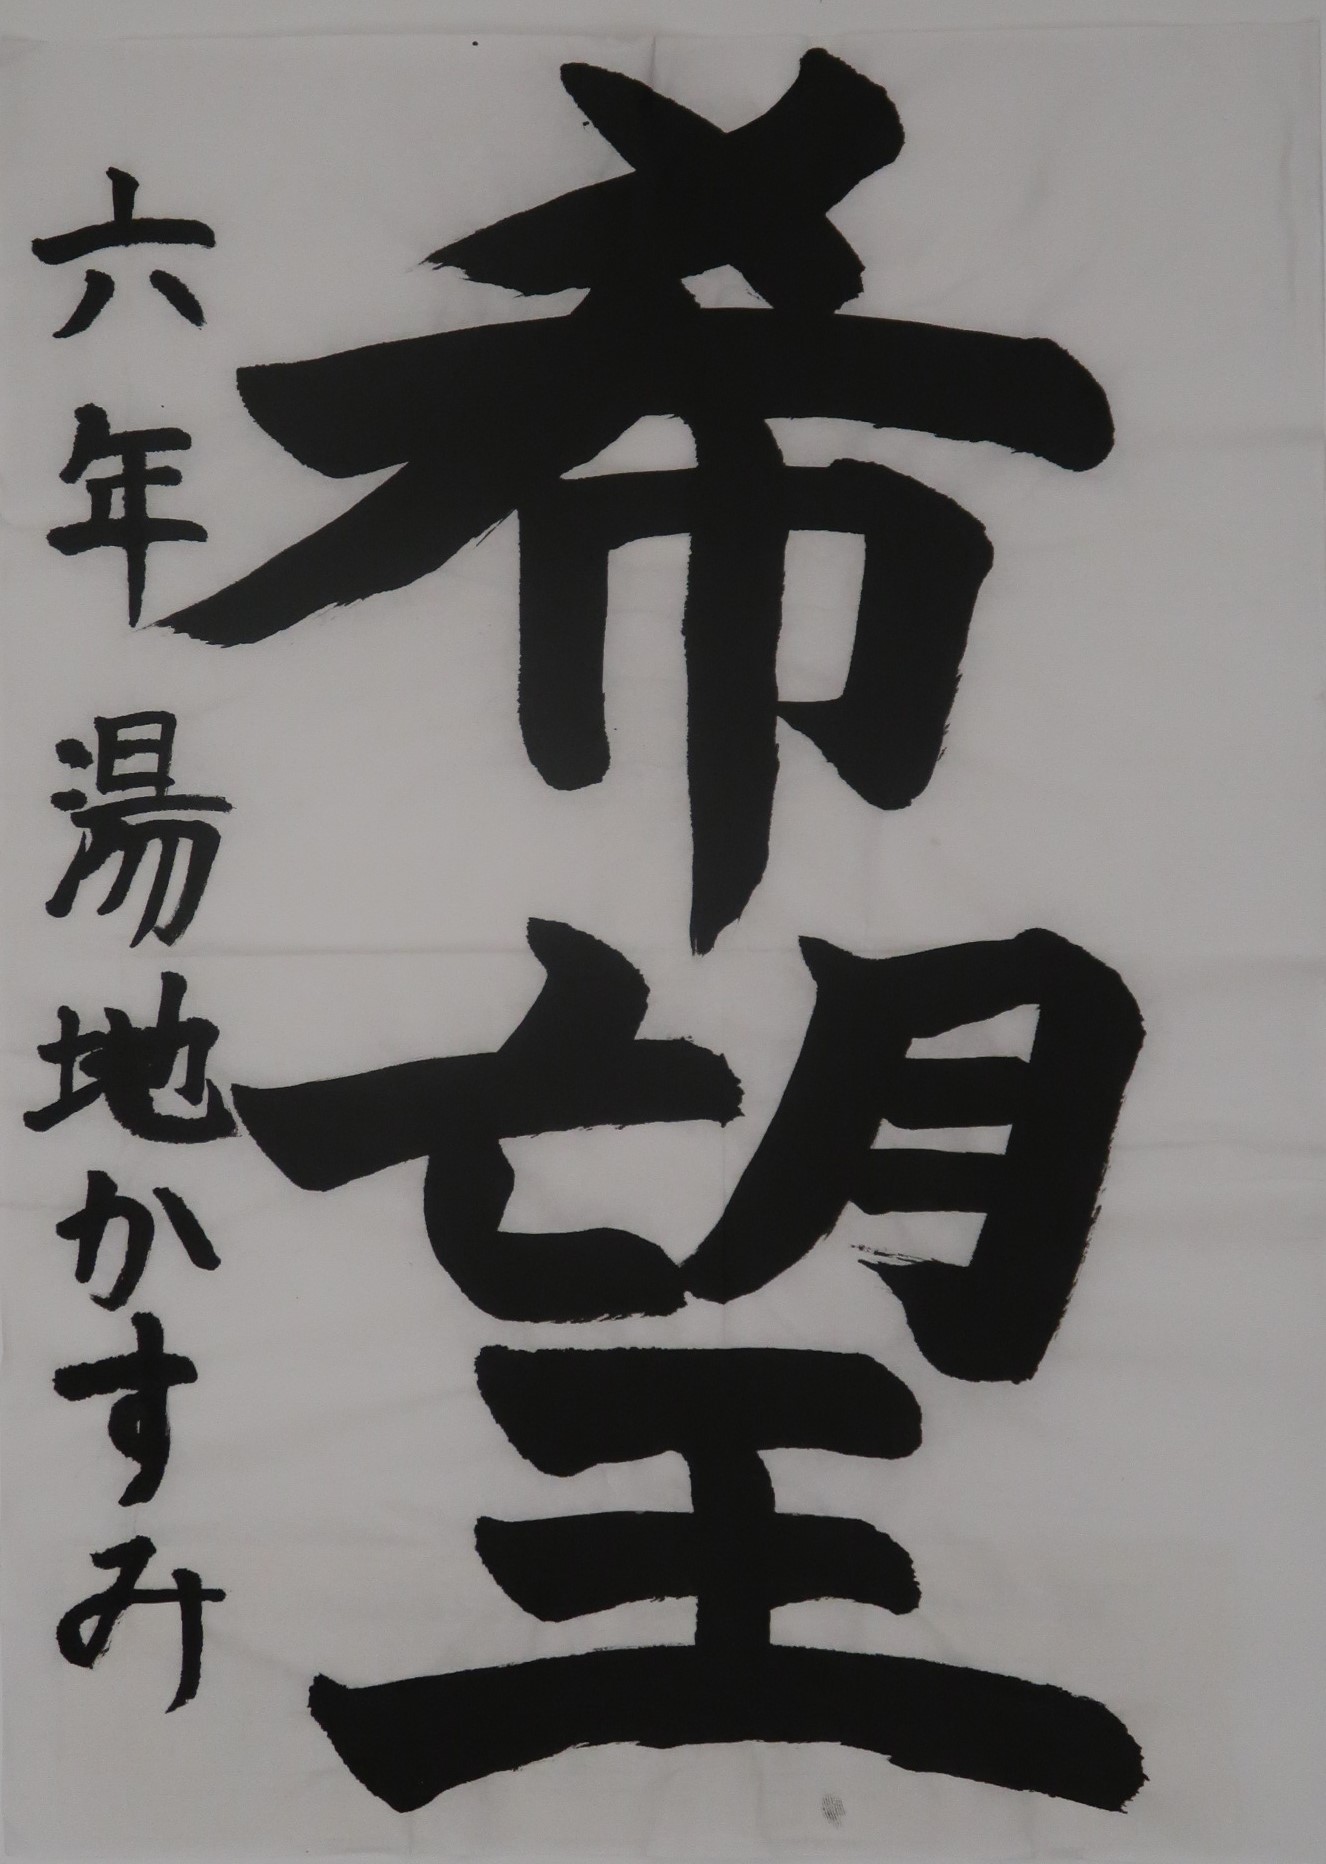 希望
六年湯地かすみ